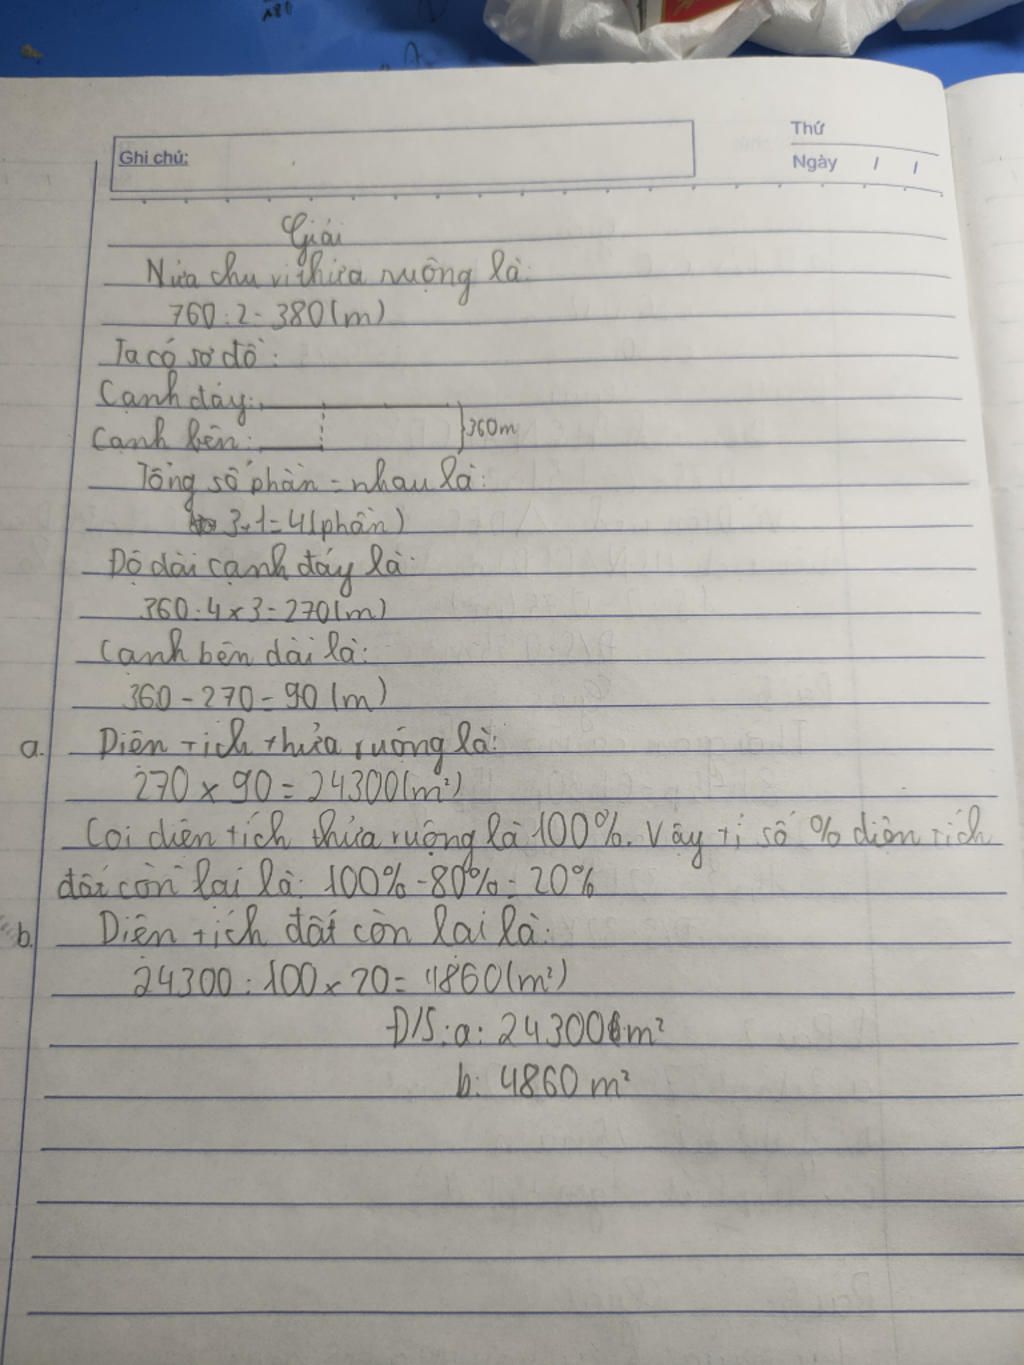 Ghi chú:
Thứ
Ngày / /
Giải
Nửa chu vi thửa ruộng là:
760 : 2 = 380 (m)
Ta có sơ đồ:
Cạnh đáy:
Cạnh bên: 360m
Tổng số phần = nhau là:
3+1=4(phần)
Độ dài cạnh đáy là:
360:4x3=270(m)
Cạnh bên dài là:
360-270=90 (m)
a. Diện tích thửa ruộng là:
270 x 90 = 24300(m²)
Coi diện tích thửa ruộng là 100%. Vậy tỉ số % diện tích
đất còn lại là: 100% - 80% = 20%
b. Diện tích đất còn lại là:
24300 : 100 x 20 = 4860(m²)
Đ/S: a: 24300 m²
b: 4860 m²